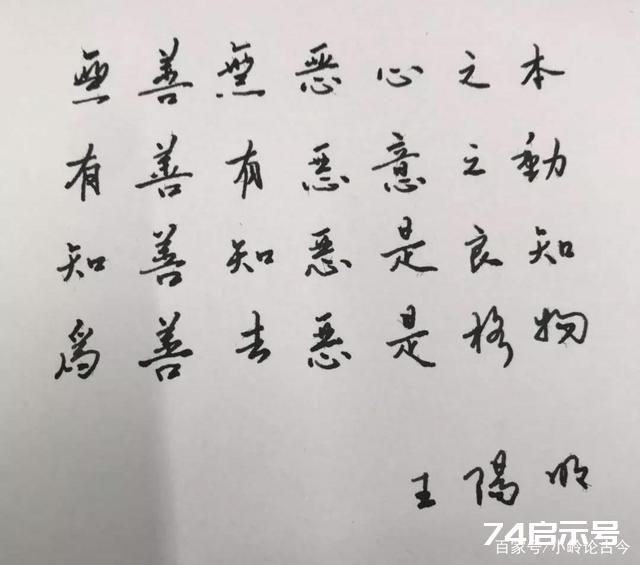 無善無惡心之本
有善有惡意之動
知善知惡是良知
為善去惡是格物
王陽明
74启示号
百家号/小岭论古今